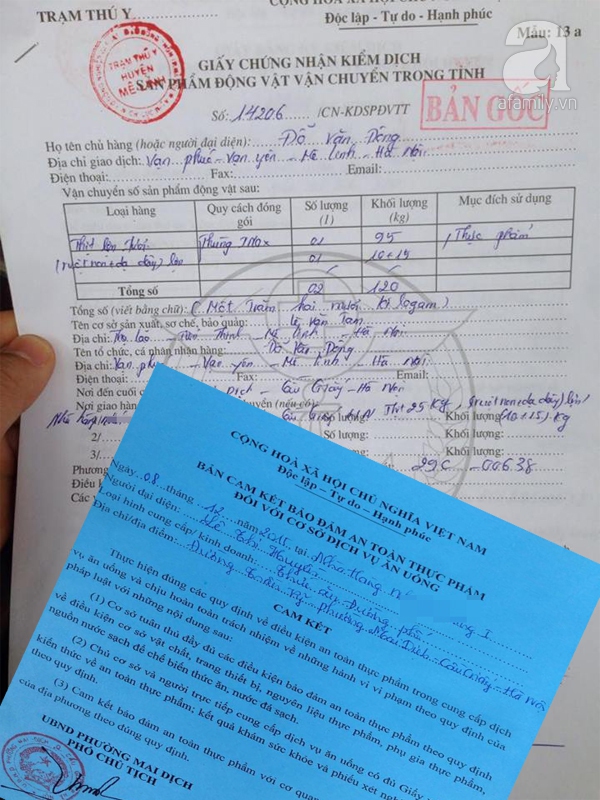 CỘNG HÒA XÃ HỘI CHỦ
TRẠM THÚ Y
Độc lập - Tự do - Hạnh phúc
Mẫu: 13 a
afamily.vn
TRẠM THÚ Y
HUYỆN
MÊ LINH
GIẤY CHỨNG NHẬN KIỂM DỊCH
SẢN PHẨM ĐỘNG VẬT VẬN CHUYỂN TRONG TỈNH
Số: 14206 /CN-KDSPĐVTT
BẢN GỐC
Họ tên chủ hàng (hoặc người đại diện): Đỗ Văn Dóng
Địa chỉ giao dịch: Vạn phúc - Vạn yên - Mê Linh - Hà Nội
Điện thoại: Fax: Email:
Vận chuyển số sản phẩm động vật sau:
Loại hàng Quy cách đóng gói Số lượng (1) Khối lượng (kg) Mục đích sử dụng
Thịt lợn Thùng Inox 01 95 Thực phẩm
(ruột non + dạ dày) lợn 01 10+15
Tổng số 02 120
Tổng số (viết bằng chữ): (Một trăm hai mươi kilogam)
Tên cơ sở sản xuất, sơ chế, bảo quản: Lê Văn Tam
Địa chỉ: Thọ lão - Tiến Thịnh - Mê Linh - Hà Nội
Tên tổ chức, cá nhân nhận hàng: Đỗ Văn Dóng
Địa chỉ: Vạn phúc - Vạn yên - Mê Linh - Hà Nội
Điện thoại: Fax: Email:
Nơi đến cuối Dịch - Cầu Giấy - Hà Nội
Nơi giao hàng chuyển (nếu có):
Nhà hàng Cầu Giấy Thịt 25 Kg, (ruột non + dạ dày) lợn
Khối lượng (10+15) Kg
2/ Số lượng: Khối lượng:
3/ Số lượng: Khối lượng:
Phương 29C - 00638
Điều
Các
CỘNG HOÀ XÃ HỘI CHỦ NGHĨA VIỆT NAM
Độc lập – Tự do – Hạnh phúc
BẢN CAM KẾT BẢO ĐẢM AN TOÀN THỰC PHẨM
ĐỐI VỚI CƠ SỞ DỊCH VỤ ĂN UỐNG
Ngày 08 tháng 12 năm 2015, tại Nhà Hàng
Người đại diện: Lê Thị Huyền
Loại hình cung cấp/ kinh doanh: Thức ăn Đường phố
Địa chỉ/địa điểm: phường Mai Dịch - Cầu Giấy - Hà Nội
CAM KẾT
Thực hiện đúng các quy định về điều kiện an toàn thực phẩm trong cung cấp dịch
vụ ăn uống và chịu hoàn toàn trách nhiệm về những hành vi vi phạm theo quy định của
pháp luật với những nội dung sau:
(1) Cơ sở tuân thủ đầy đủ các điều kiện bảo đảm an toàn thực phẩm theo quy định
về điều kiện cơ sở vật chất, trang thiết bị, nguyên liệu thực phẩm, phụ gia thực phẩm,
nguồn nước sạch để chế biến thức ăn, nước đá sạch.
(2) Chủ cơ sở và người trực tiếp cung cấp dịch vụ ăn uống có đủ Giấy
kiến thức về an toàn thực phẩm; kết quả khám sức khỏe và phiếu xét
theo quy định.
(3) Cam kết bảo đảm an toàn thực phẩm với cơ quan
của địa phương theo đúng quy định.
UBND PHƯỜNG MAI DỊCH
PHÓ CHỦ TỊCH